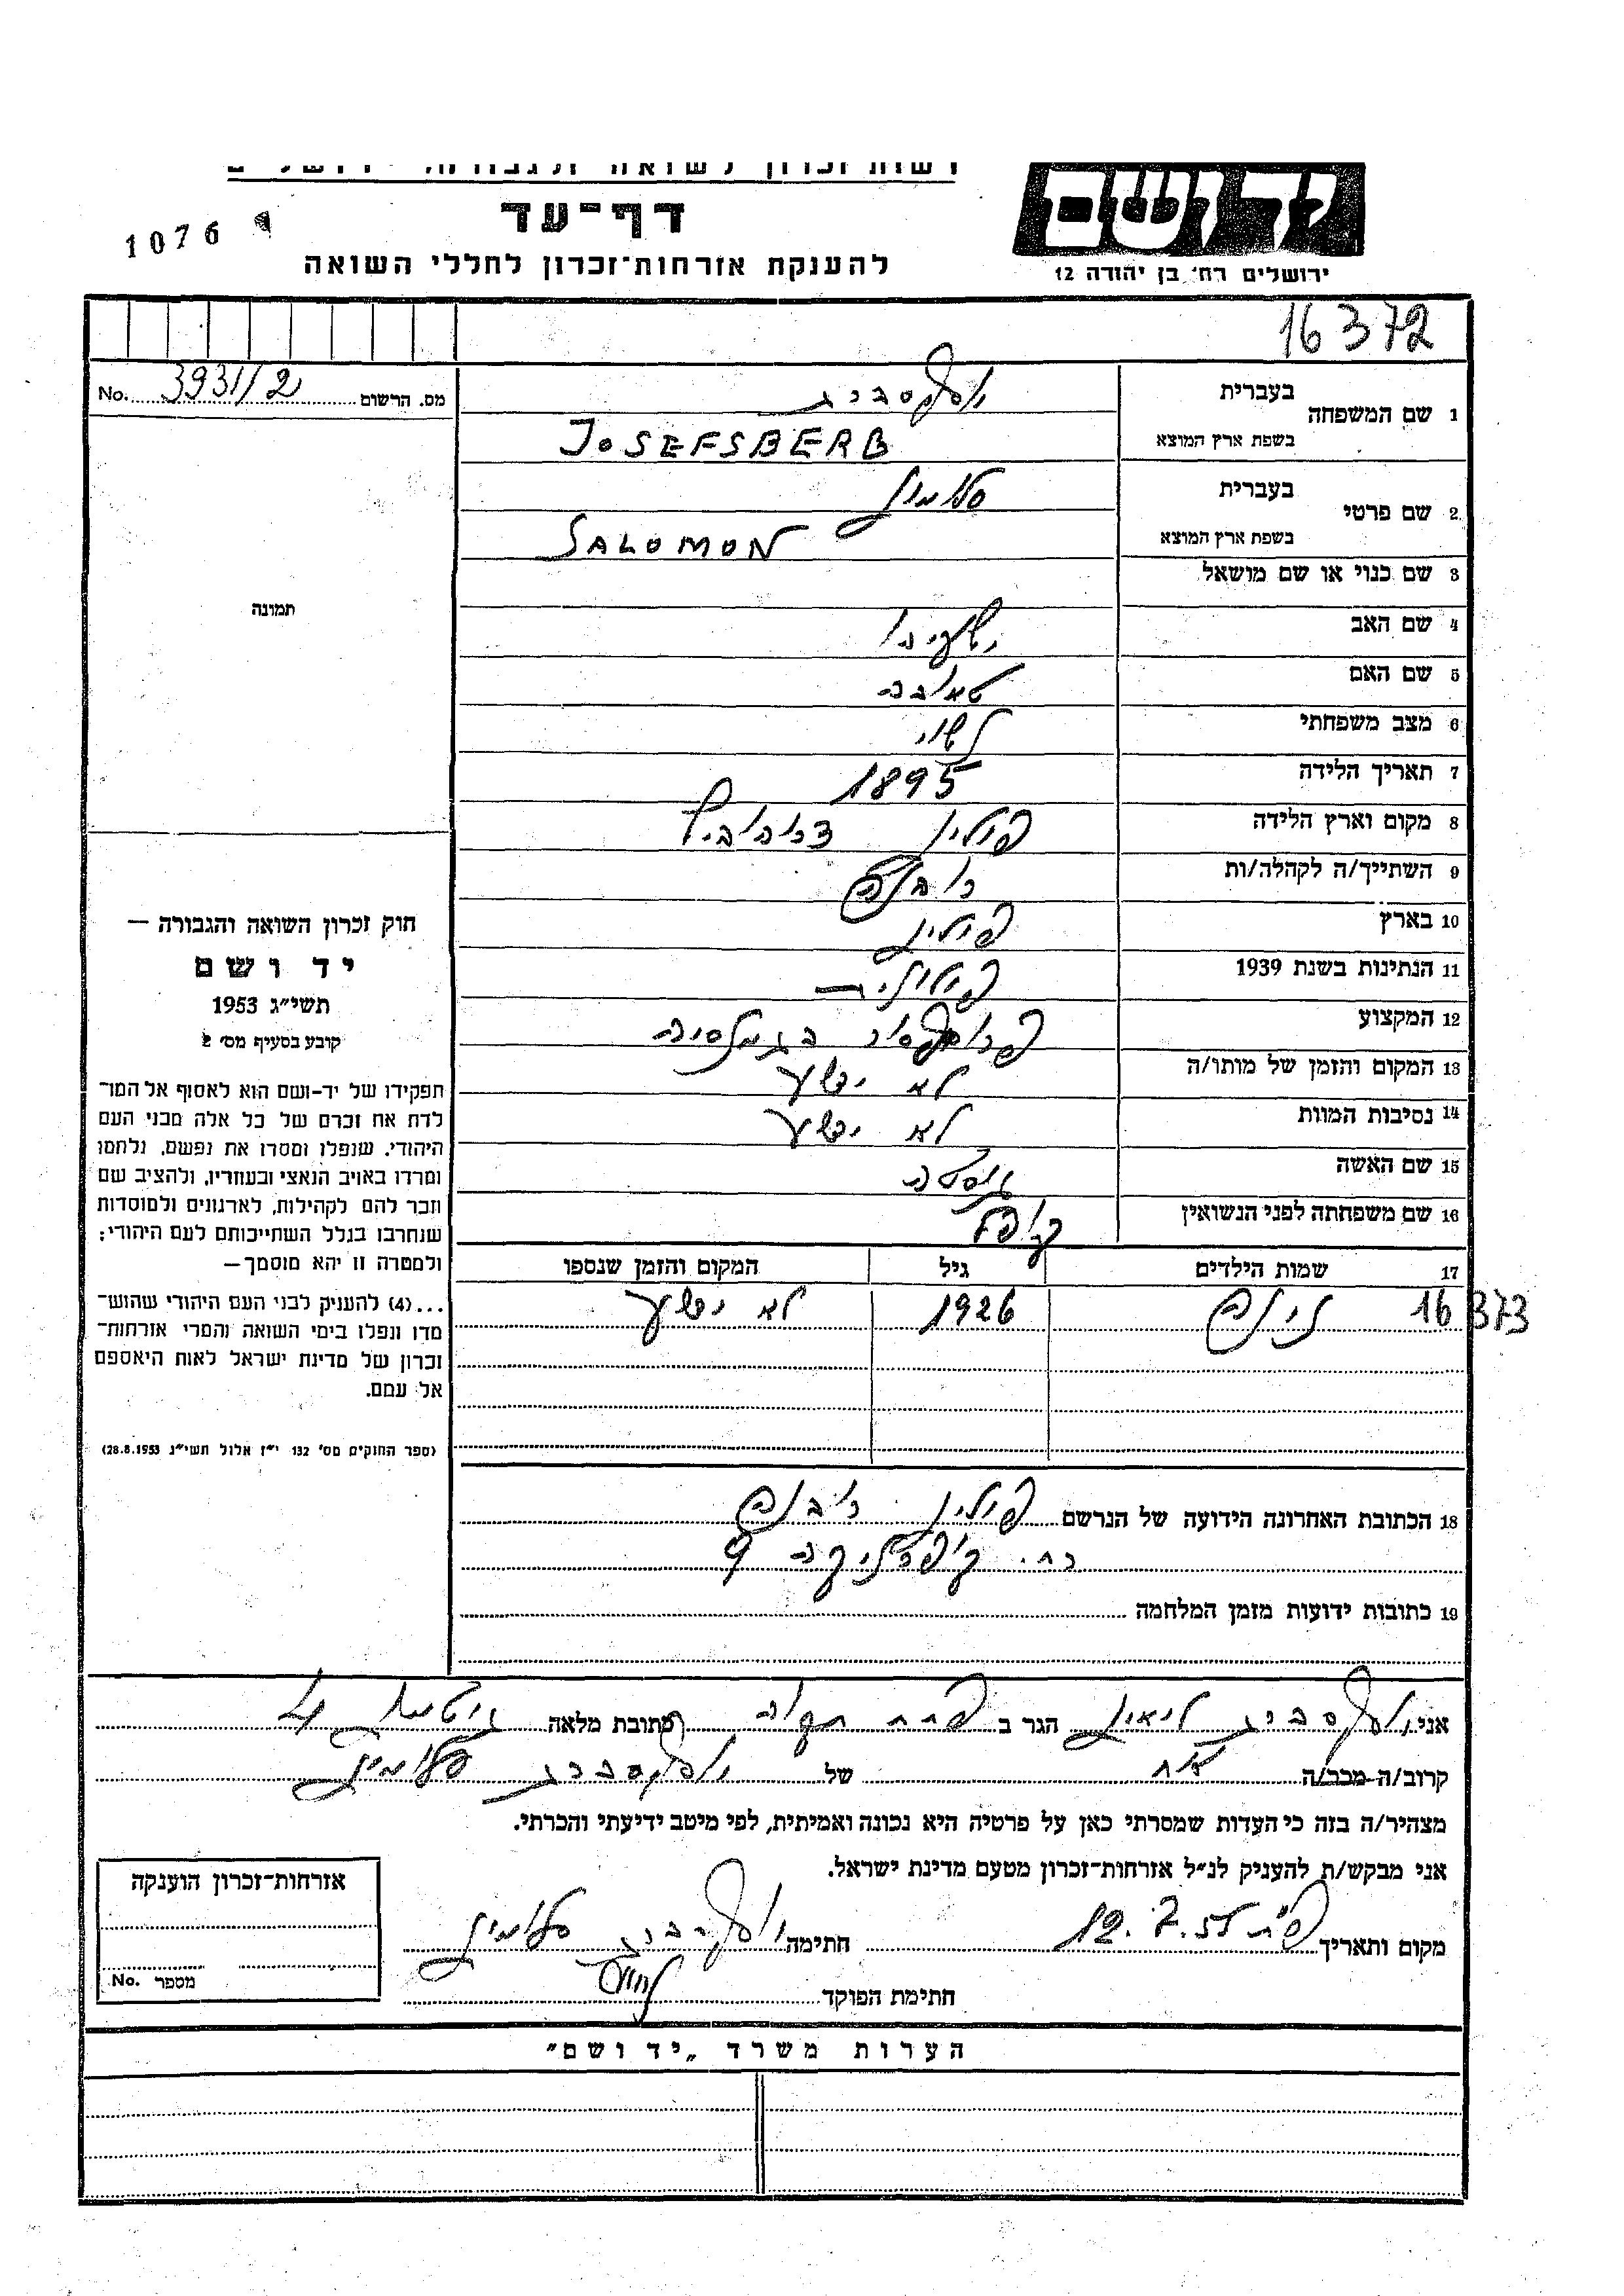 דף-עד
1076
להענקת אזרחות-זכרון לחללי השואה
ירושלים רח׳ בן יהודה 12
16372
מס. הרשום 3931/2 No.
1 שם המשפחה
בעברית
בשפת ארץ המוצא JOSEFSBERB
2 שם פרטי
בעברית
בשפת ארץ המוצא SALOMON
3 שם כנוי או שם מושאל
תמונה
4 שם האב
5 שם האם
6 מצב משפחתי נשוי
7 תאריך הלידה 1895
8 מקום וארץ הלידה פולין
9 השתייך/ה לקהלה/ות
10 בארץ פולין
11 הנתינות בשנת 1939 פולנית
12 המקצוע
13 המקום והזמן של מותו/ה לא ידוע
14 נסיבות המוות לא ידוע
15 שם האשה
16 שם משפחתה לפני הנשואין
17 שמות הילדים גיל המקום והזמן שנספו
16373 1926 לא ידוע
חוק זכרון השואה והגבורה —
יד ושם
תשי״ג 1953
קובע בסעיף מס׳ 2
תפקידו של יד-ושם הוא לאסוף אל המו־
לדת את זכרם של כל אלה מבני העם
היהודי, שנפלו ומסרו את נפשם, נלחמו
ומרדו באויב הנאצי ובעוזריו, ולהציב שם
וזכר להם לקהילות, לארגונים ולמוסדות
שנחרבו בגלל השתייכותם לעם היהודי;
ולמטרה זו יהא מוסמך—
...(4) להעניק לבני העם היהודי שהוש־
מדו ונפלו בימי השואה והמרי אזרחות־
זכרון של מדינת ישראל לאות היאספם
אל עמם.
(ספר החוקים מס׳ 132 י״ז אלול תשי״ג 28.8.1953)
18 הכתובת האחרונה הידועה של הנרשם פולין
רח. 9
19 כתובות ידועות מזמן המלחמה
אני הגר ב פתח תקוה כתובת מלאה 4
קרוב/ה מכר/ה אח של
מצהיר/ה בזה כי העדות שמסרתי כאן על פרטיה היא נכונה ואמיתית, לפי מיטב ידיעתי והכרתי.
אני מבקש/ת להעניק לנ״ל אזרחות-זכרון מטעם מדינת ישראל.
מקום ותאריך 12.7.55 חתימה
חתימת הפוקד
אזרחות-זכרון הוענקה
מספר No.
הערות משרד „יד ושם״